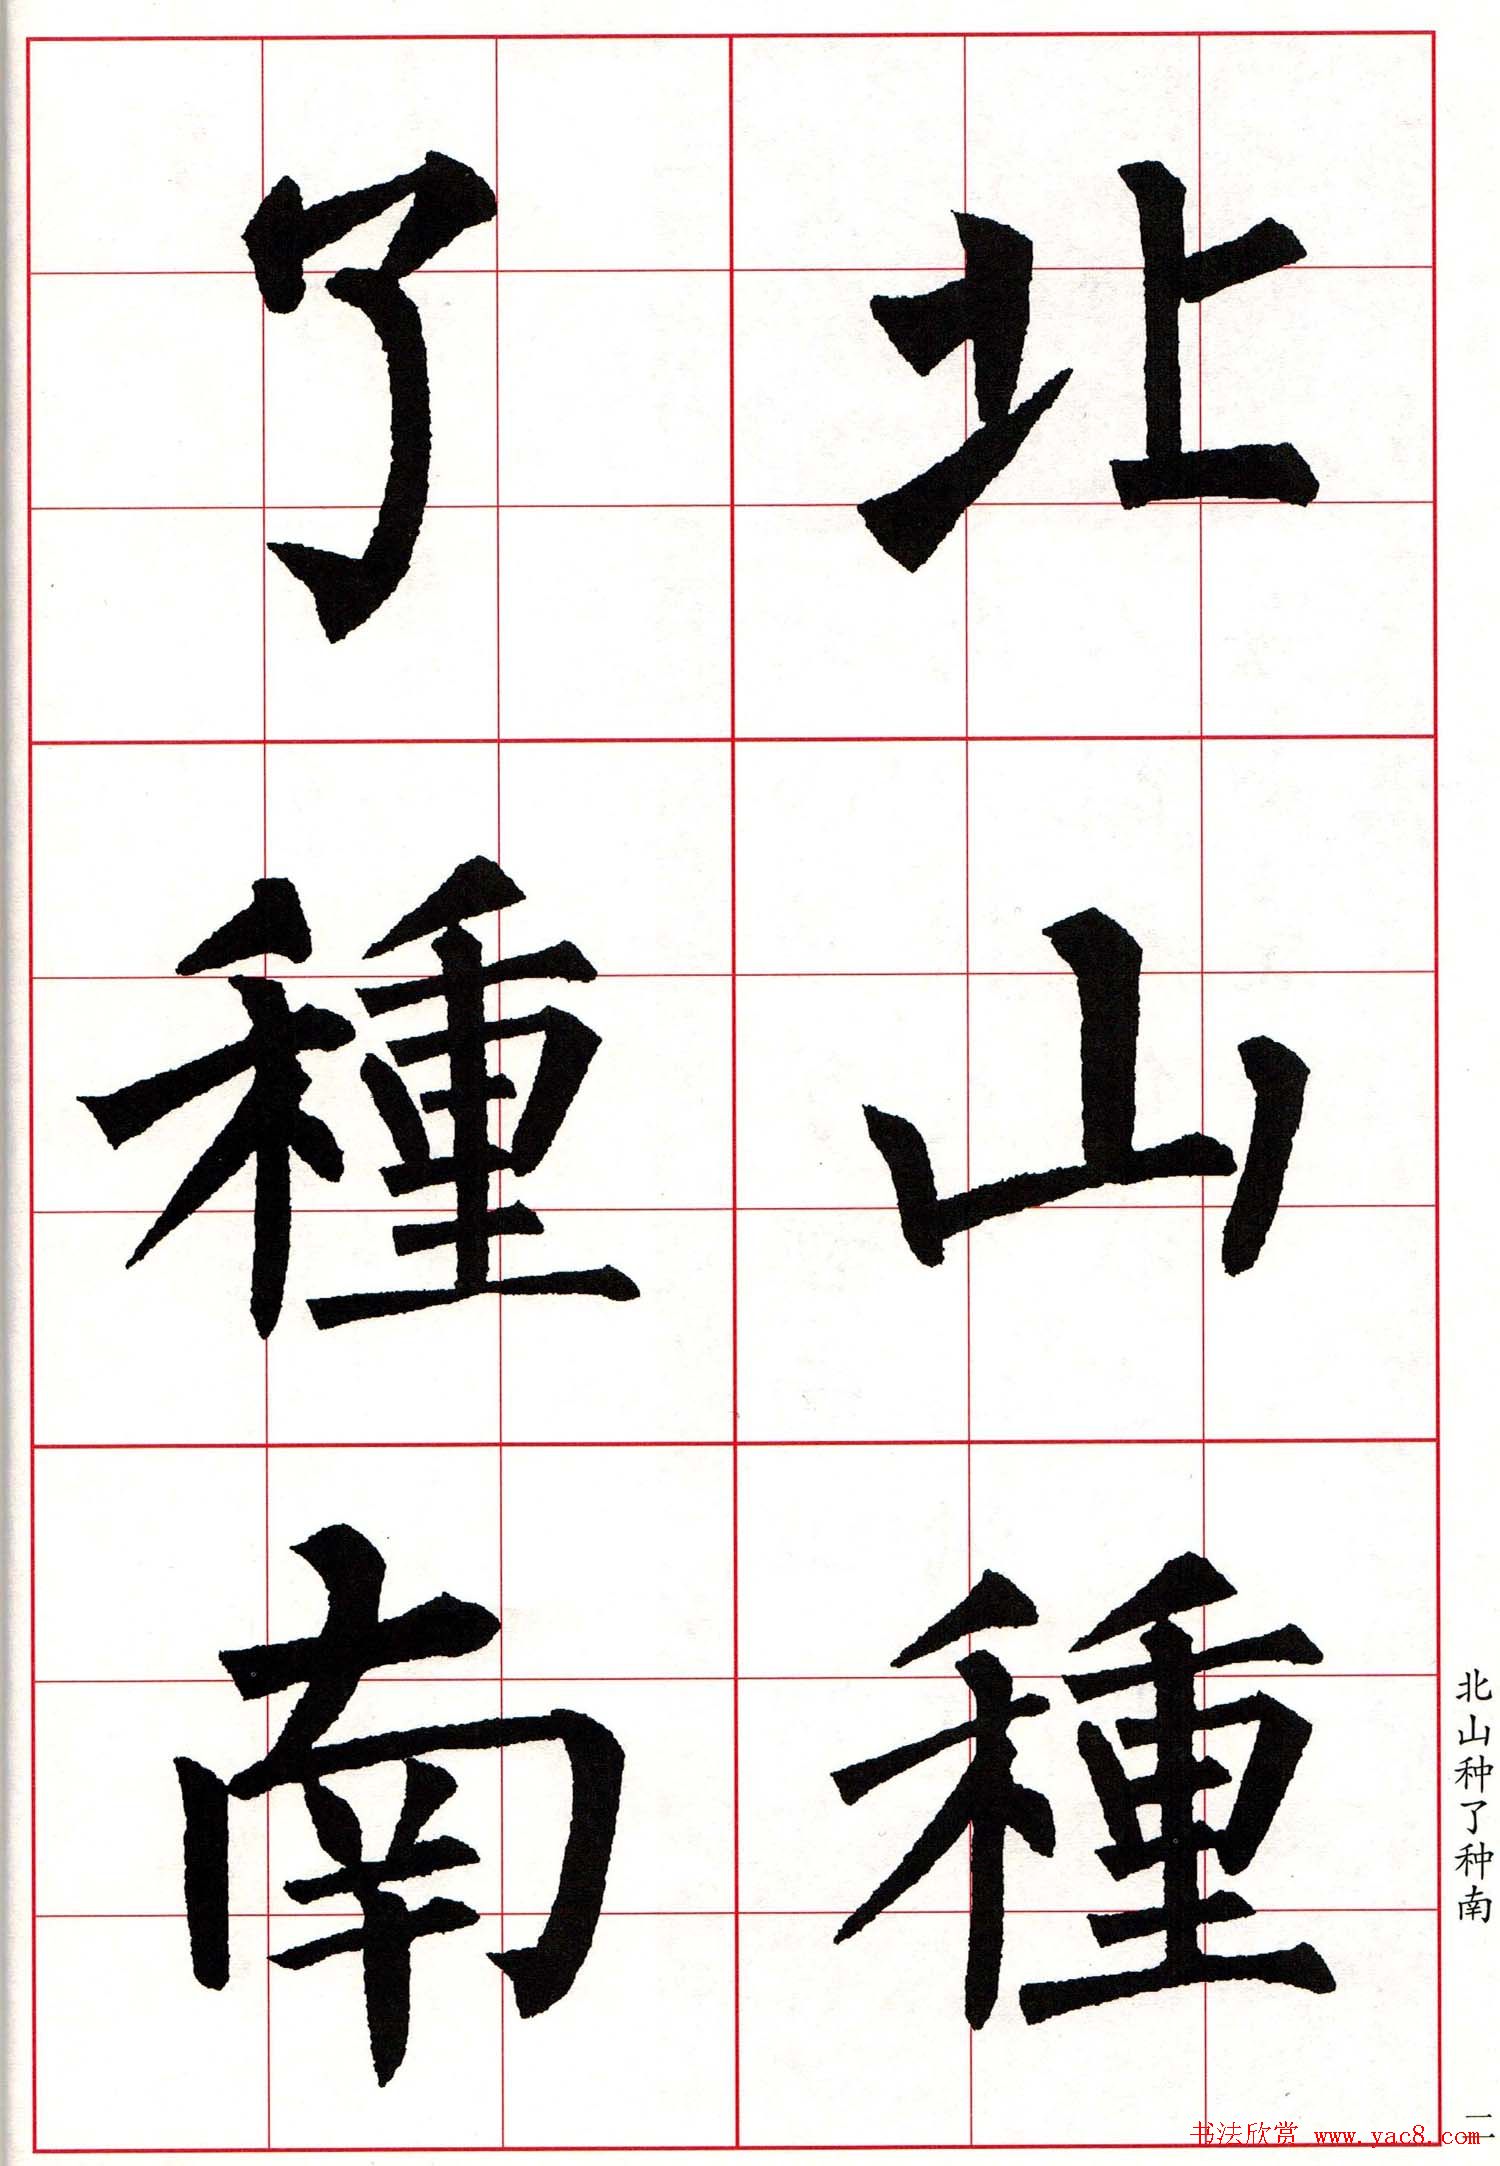 北山種
了種南
北山种了种南
二
书法欣赏 www.yac8.com